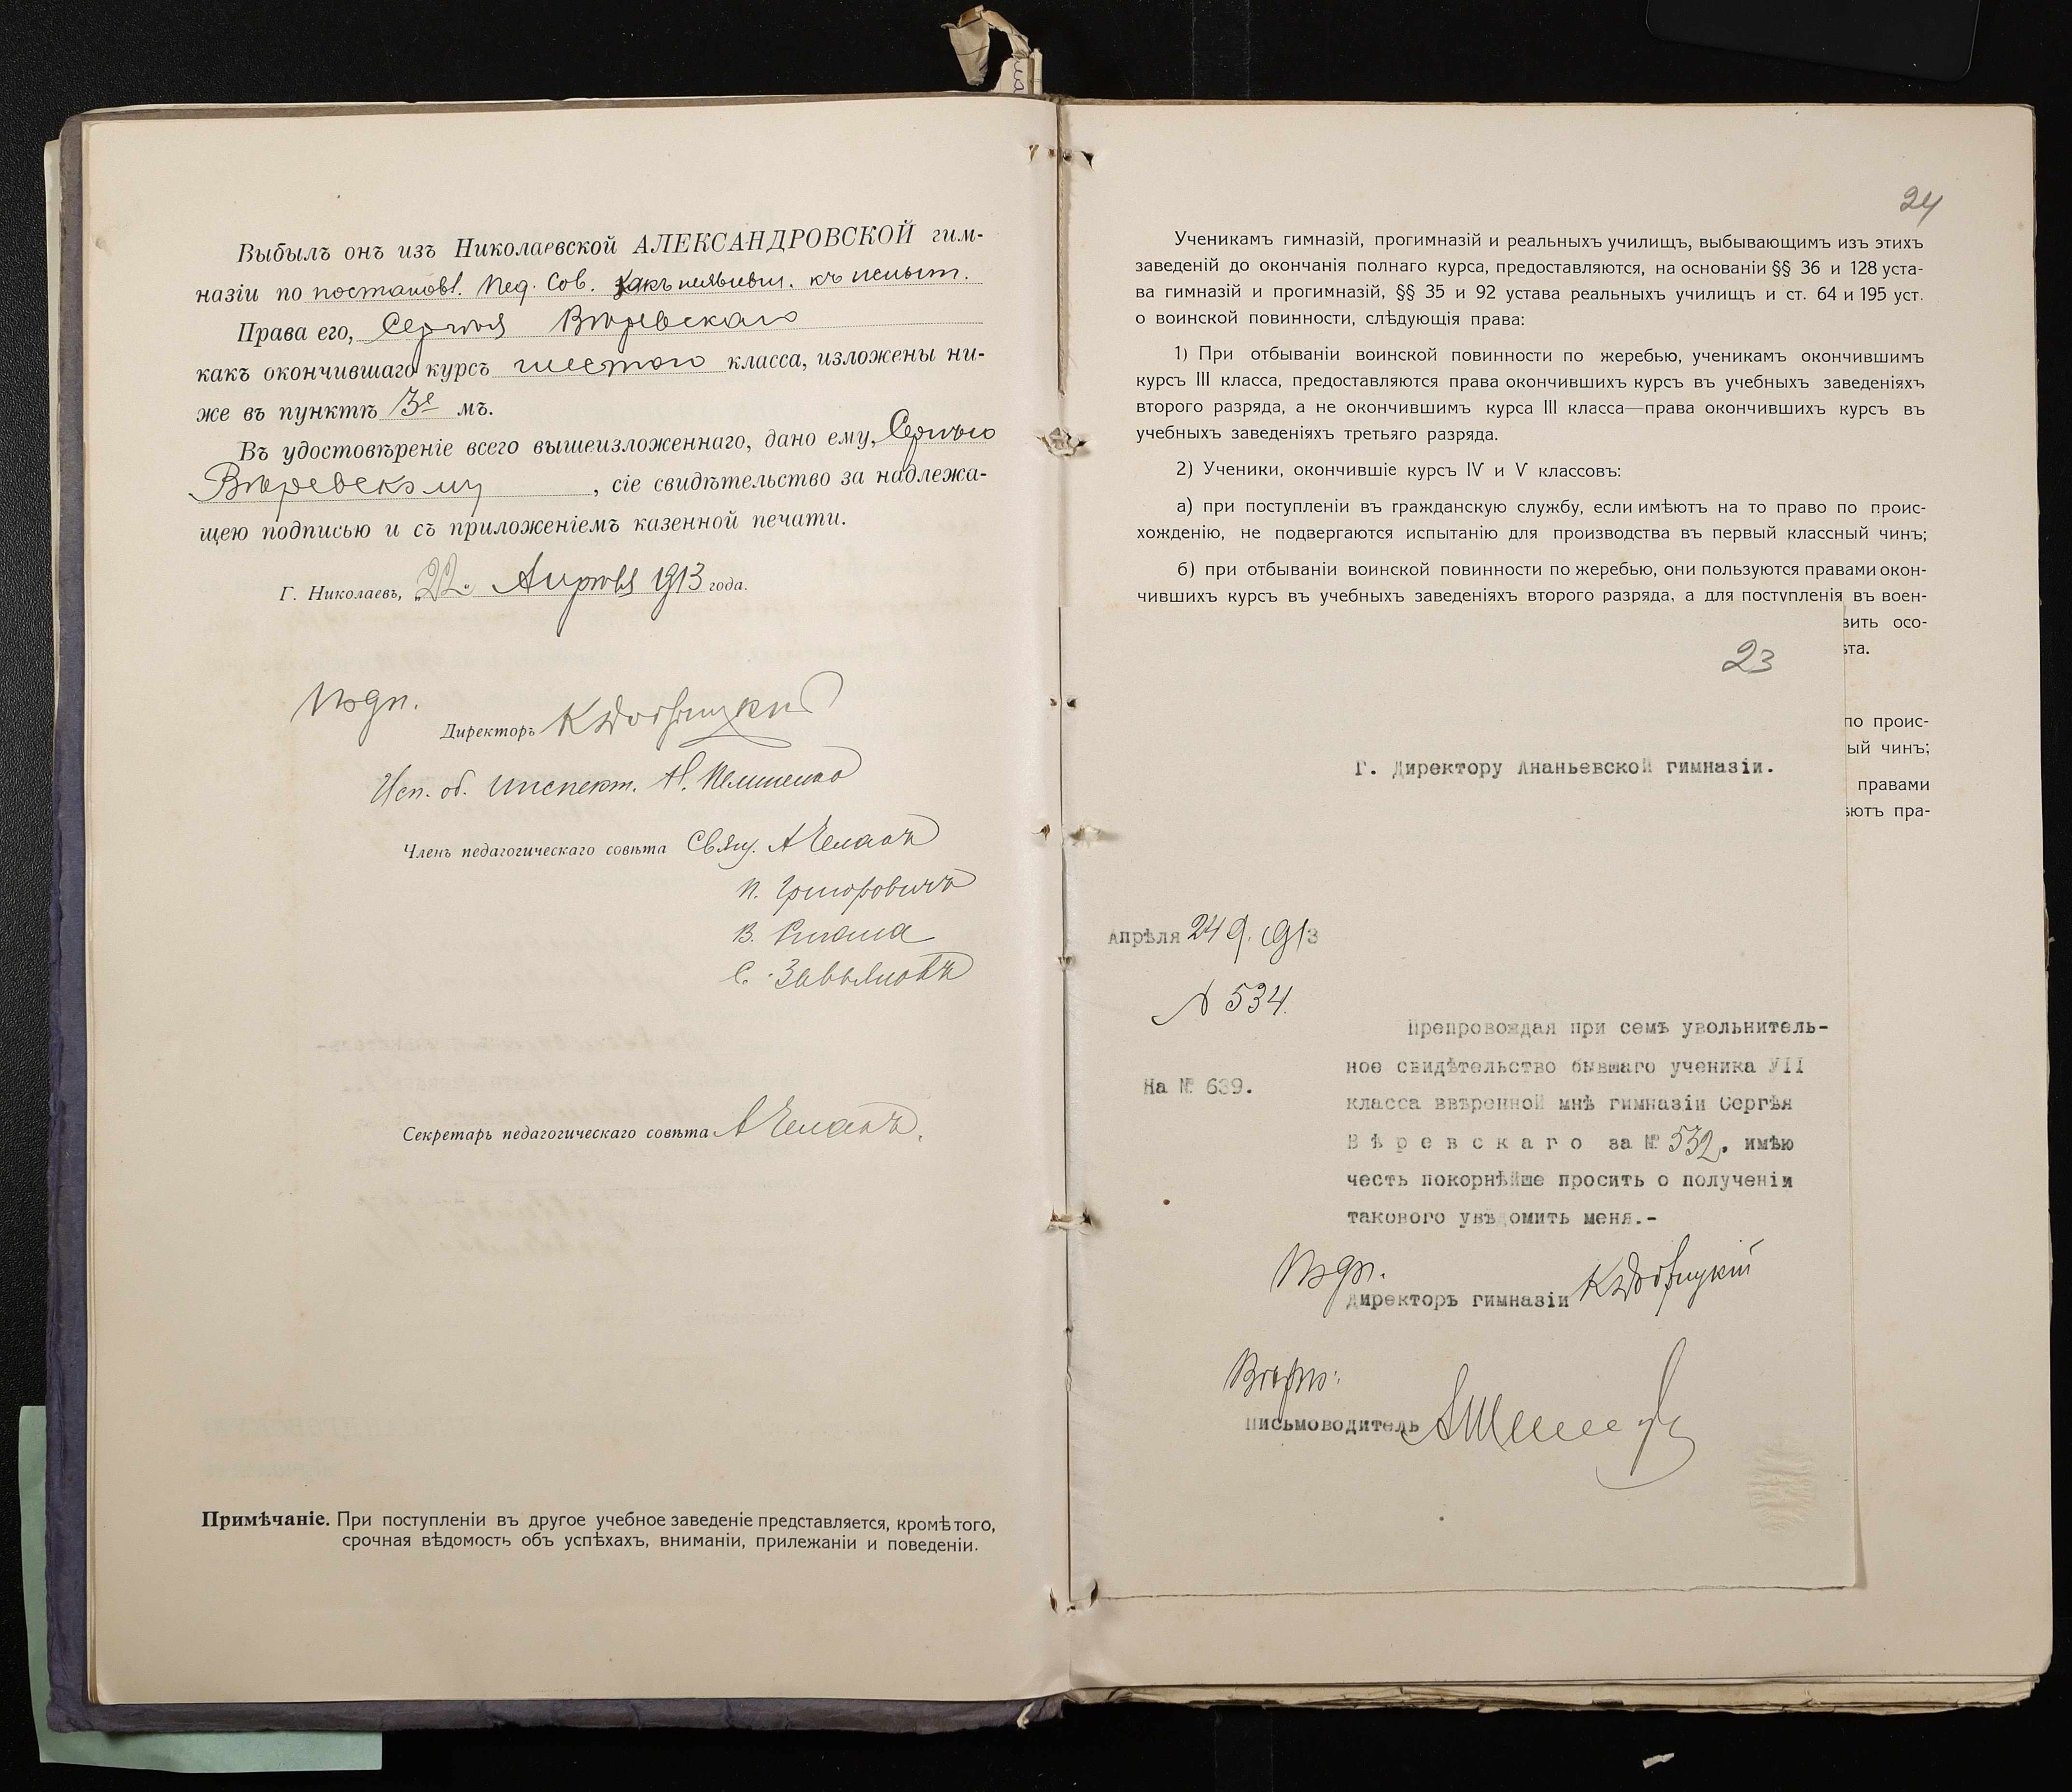 Выбылъ онъ изъ Николаевской АЛЕКСАНДРОВСКОЙ гим-
назіи по постановл. Пед. Сов. какъ неявивш. къ испыт.
Права его, Сергѣя Вѣревскаго
какъ окончившаго курсъ шестого класса, изложены ни-
же въ пунктѣ 3е мъ.
Въ удостовѣреніе всего вышеизложеннаго, дано ему, Сергѣю
Вѣревскому, сіе свидѣтельство за надлежа-
щею подписью и съ приложеніемъ казенной печати.
Г. Николаевъ, „22“ Апрѣля 1913 года.
Подп.
Директоръ
Исп. об. инспект. А.
Членъ педагогическаго совѣта Свящ. А
П. Григоровичъ
В.
С. Завьяловъ
Секретарь педагогическаго совѣта А
Примѣчаніе. При поступленіи въ другое учебное заведеніе представляется, кромѣ того,
срочная вѣдомость объ успѣхахъ, вниманіи, прилежаніи и поведеніи.
24
Ученикамъ гимназій, прогимназій и реальныхъ училищъ, выбывающимъ изъ этихъ
заведеній до окончанія полнаго курса, предоставляются, на основаніи §§ 36 и 128 уста-
ва гимназій и прогимназій, §§ 35 и 92 устава реальныхъ училищъ и ст. 64 и 195 уст.
о воинской повинности, слѣдующія права:
1) При отбываніи воинской повинности по жеребью, ученикамъ окончившимъ
курсъ III класса, предоставляются права окончившихъ курсъ въ учебныхъ заведеніяхъ
второго разряда, а не окончившимъ курса III класса—права окончившихъ курсъ въ
учебныхъ заведеніяхъ третьяго разряда.
2) Ученики, окончившіе курсъ IV и V классовъ:
а) при поступленіи въ гражданскую службу, если имѣютъ на то право по проис-
хожденію, не подвергаются испытанію для производства въ первый классный чинъ;
б) при отбываніи воинской повинности по жеребью, они пользуются правами окон-
чившихъ курсъ въ учебныхъ заведеніяхъ второго разряда, а для поступленія въ воен-
вить осо-
ѣта.
по проис-
ый чинъ;
правами
ѣютъ пра-
23
Г. Директору Ананьевской гимназіи.
Апрѣля 24 д. 1913
№ 534.
На № 639.
Препровождая при семъ увольнитель-
ное свидѣтельство бывшаго ученика УІІ
класса ввѣренной мнѣ гимназіи Сергѣя
Вѣревскаго за № 532, имѣю
честь покорнѣйше просить о полученіи
такового увѣдомить меня.-
Подп.
Директоръ гимназіи
Вѣрно:
Письмоводитель